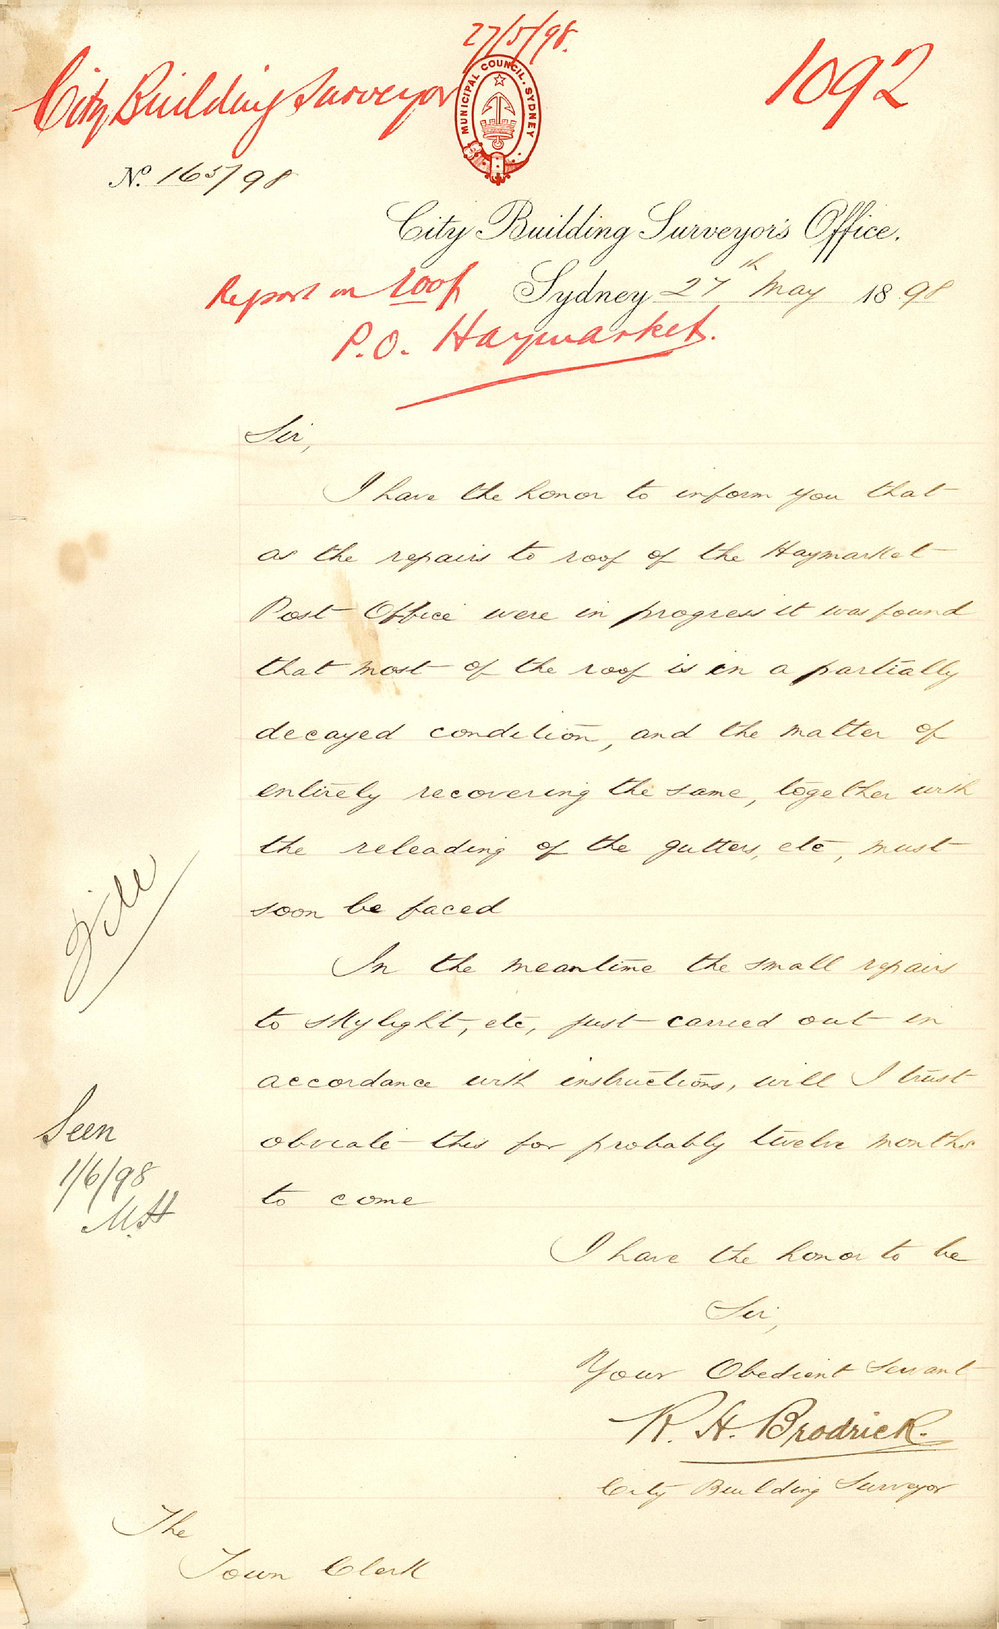 27/5/98.
City Building Surveyor
1092
MUNICIPAL COUNCIL. SYDNEY
No. 165/98
City Building Surveyor's Office.
Report on roof
Sydney 27th May 1898
P.O. Haymarket.
Sir,
I have the honor to inform you that
as the repairs to roof of the Haymarket
Post Office were in progress it was found
that most of the roof is in a partially
decayed condition, and the matter of
entirely recovering the same, together with
the releading of the gutters, etc, must
soon be faced
In the meantime the small repairs
to skylight, etc, just carried out in
accordance with instructions, will I trust
obviate this for probably twelve months
to come
File
Seen
1/6/98
M.H
I have the honor to be
Sir,
Your Obedient Servant
R. H. Brodrick.
City Building Surveyor
The
Town Clerk